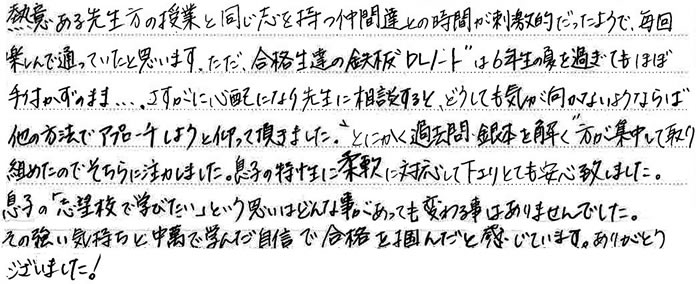 熱意ある先生方の授業と同じ志を持つ仲間達との時間が刺激的だったようで、毎回
楽しんで通っていたと思います。ただ、合格生達の鉄板"DLノート"は6年生の夏を過ぎてもほぼ
手付かずのまま…。さすがに心配になり先生に相談すると、どうしても気が向かないようならば
他の方法でアプローチしようと仰って頂きました。"とにかく過去問・銀本を解く"方が集中して取り
組めたのでそちらに注力しました。息子の特性に柔軟に対応して下さりとても安心致しました。
息子の「志望校で学びたい」という思いはどんな事があっても変わる事はありませんでした。
その強い気持ちと中萬で学んだ自信で合格を掴んだと感じています。ありがとう
ございました!